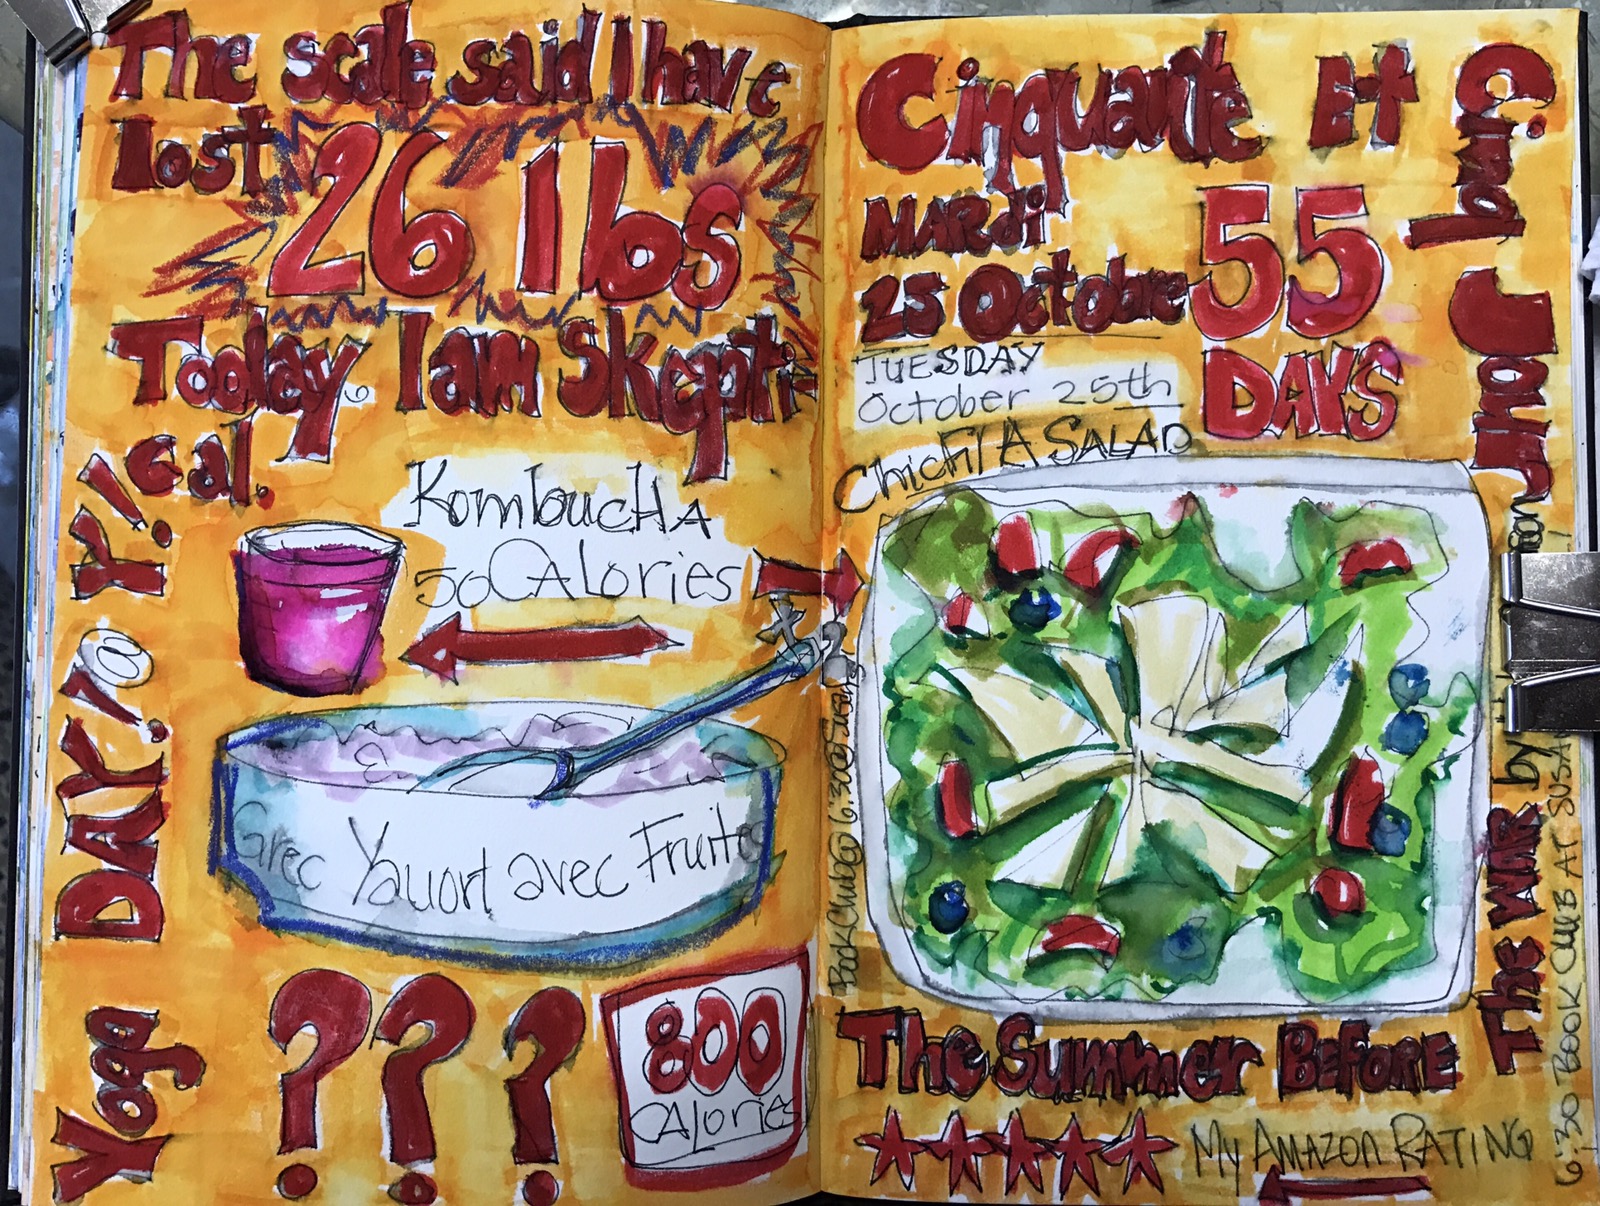 The scale said I have
lost 26 lbs
Today. I am Skepti
cal.
Y!
Yoga DAY!
KombuchA
50 CALories
Grec Yauort avec Fruite
???
800
CALories
Cinquante Et
Cinq
MARdi
25 Octobre
55
DAYS
TUESDAY
October 25th
ChicFil A SALAD
Jour
BookClub@ 6:30@Susan
The Summer Before
The WAR by
6:30 BOOK CLUB AT SUSA
My AMAZON RATING